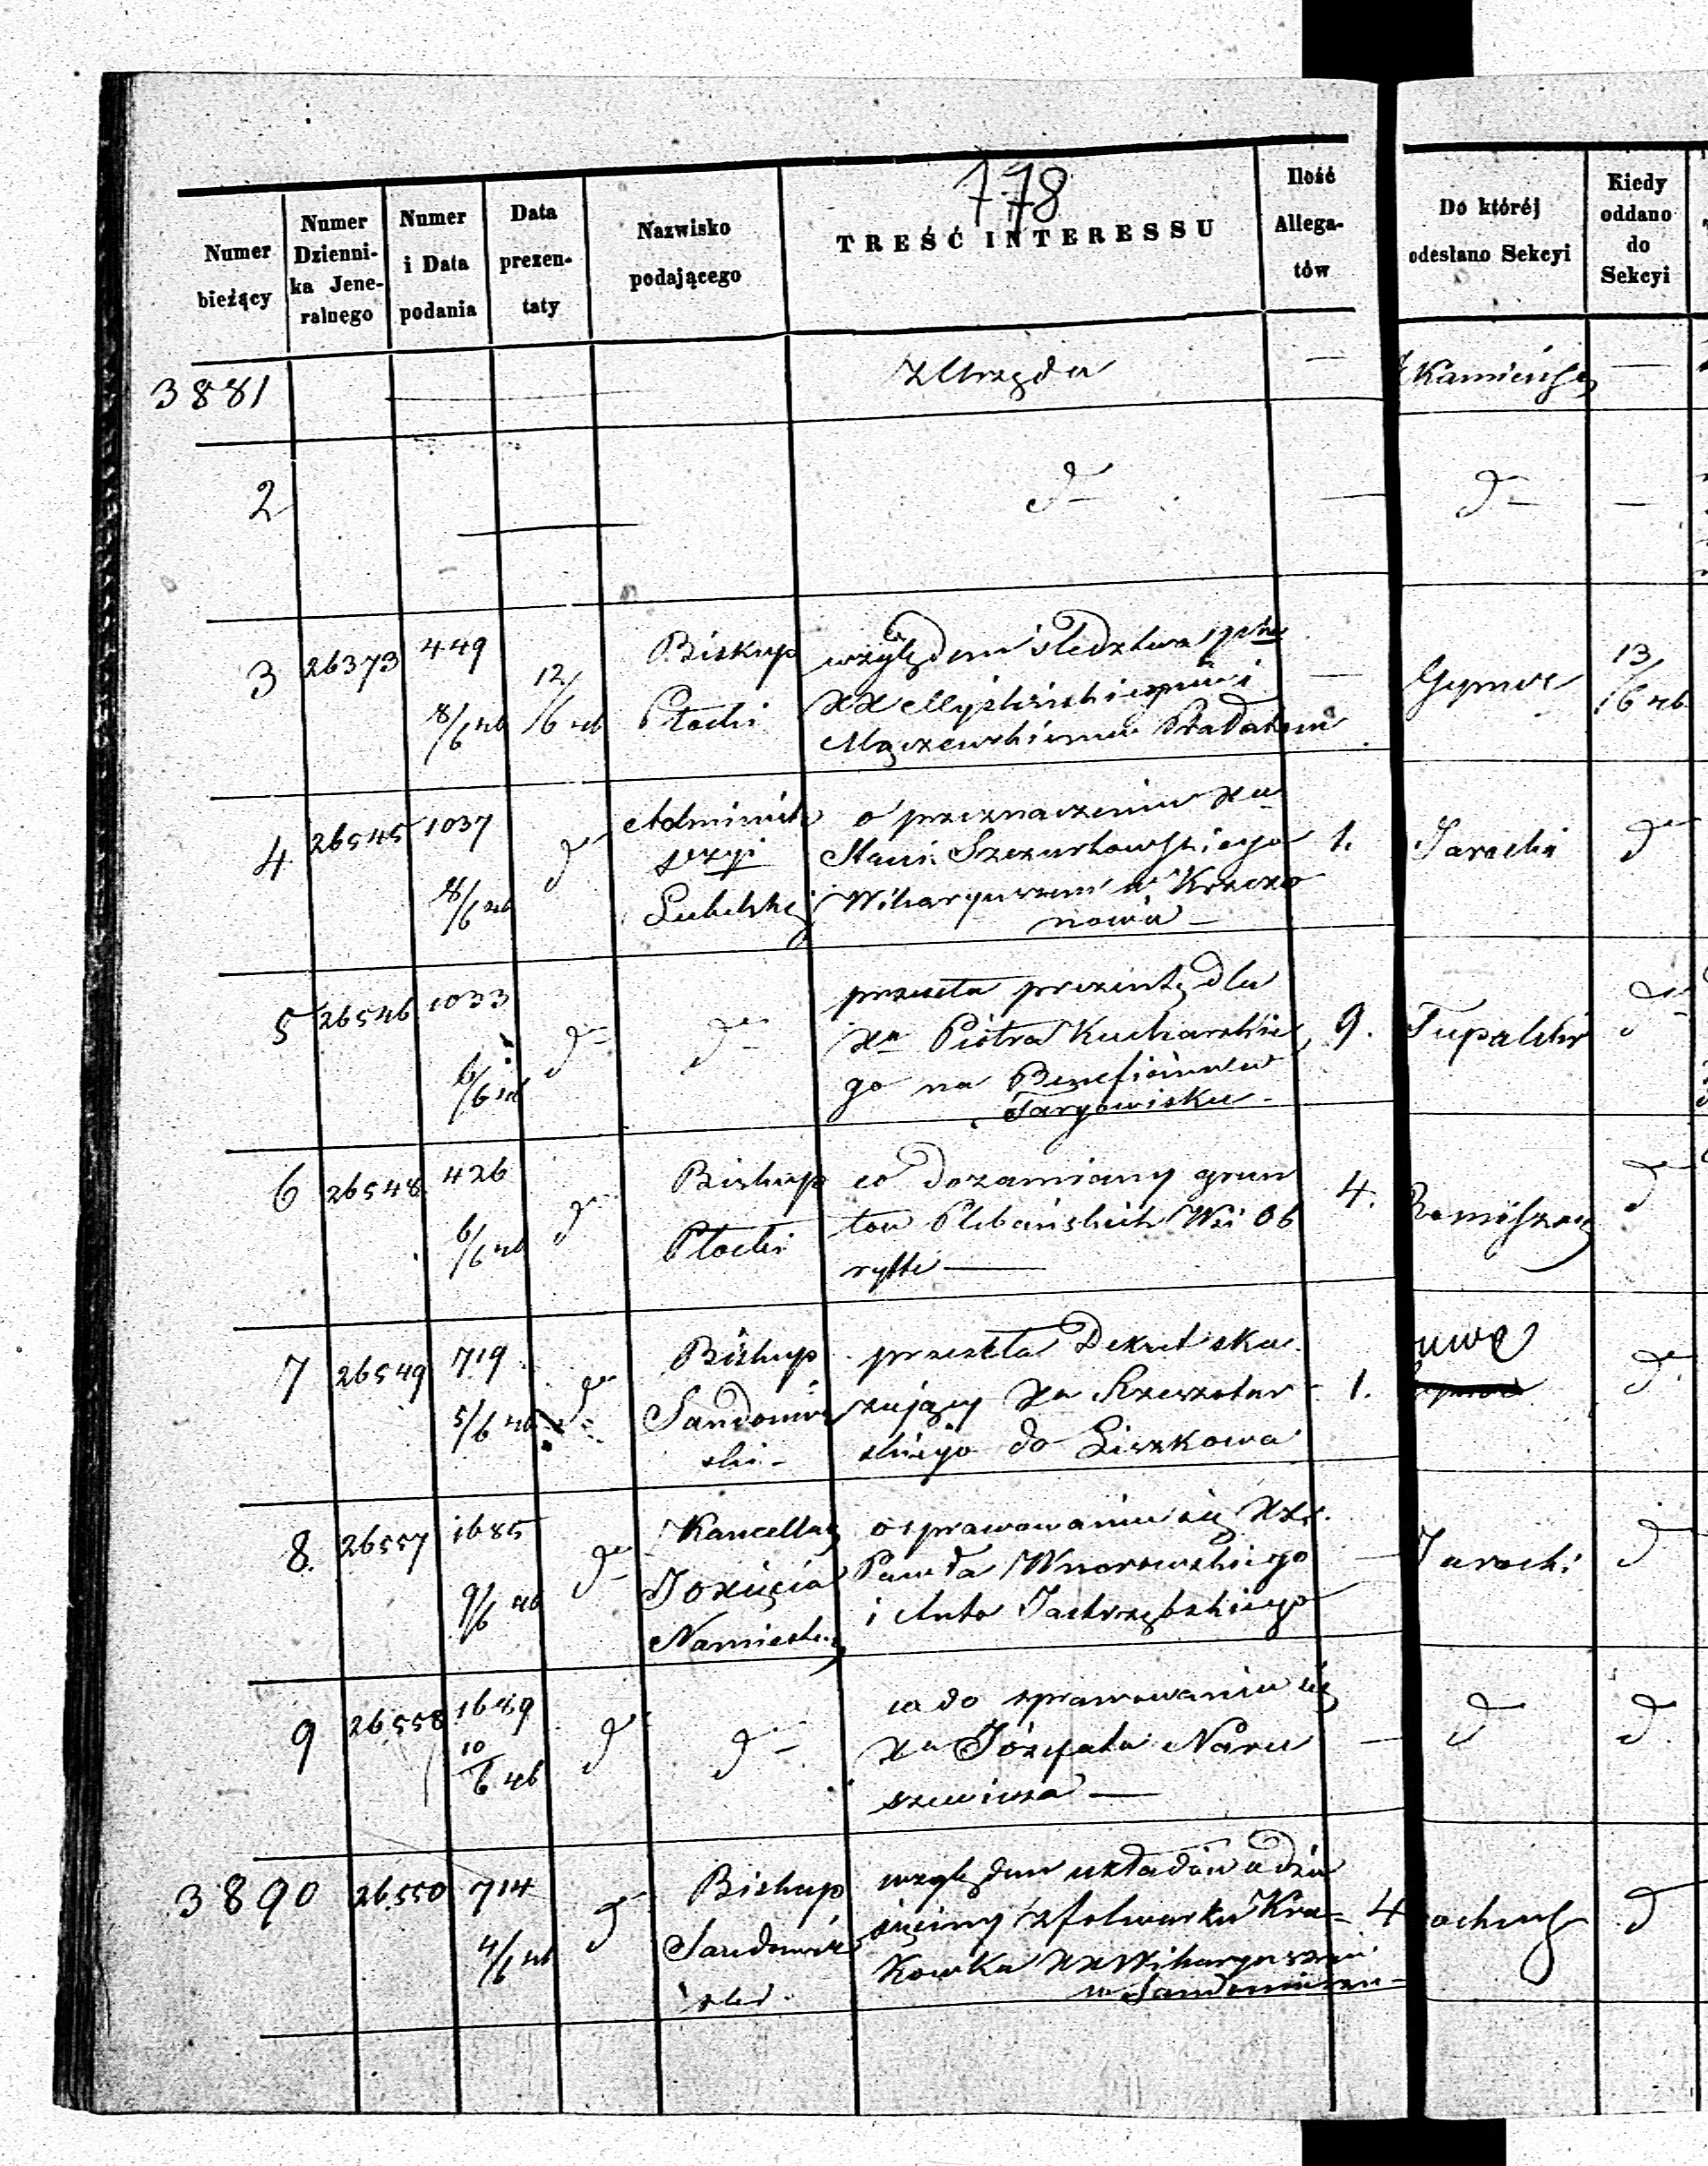 778
Numer bieżący
Numer Dzienni-ka Jene-ralnego
Numer i Data podania
Data prezen-taty
Nazwisko podającego
TREŚĆ INTERESSU
Ilość Allega-tów
Do któréj odesłano Sekcyi
Kiedy oddano do Sekcyi
3881 z Urzędu —
2 do — do —
3 26373 449 8/6 46 12/6 46 Biskup Płocki
względem śledztwa
XX i
— 13/6 46
4 26545 1037 8/6 46 do
Lubelskiej
o przeznaczeniu Xa
Stani. Szczurkowskiego
Wikaryuszem w Krzczo
nowie —
1. Jarocki do
5 26546 1033 6/6 46 do do
przesyła prezentę dla
Xa Piotra Kucharskie
go na Beneficium w
Targowisku —
9. Tupalski do
6 26548 426 6/6 46 do Biskup Płocki
co do zamiany grun
tów Plebańskich Wsi Ob
rytte —
4. do
7 26549 719 5/6 46 do Biskup Sandomir ski —
przesyła Dekret ska
zujący Xa
skiego do Liszkowa
1. do
8. 26557 1685 9/6 46 do Kancellarya JO Xięcia Namiestnika
o sprawowaniu się XX.
Pawła Wnorowskiego
i Anto Jastrzębskiego
— Jarocki do
9 26558 1689 10/6 46 do do
co do sprawowania się
Xa Józefata Naru
szewicza —
— do do
3890 26550 714 4/6 46 do Biskup Sandomir ski
względem układów o dzie
sięciny z folwarku Kra=
kowka XX Wikaryuszom
w Sandomierzu —
4 do